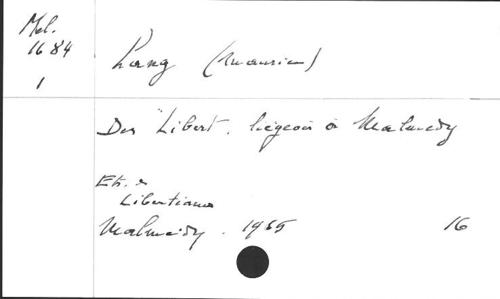 Mel.
1684
1
Lang (Maurice)
Des "Libert" liégeois à Malmedy
Libertiana
Malmedy. 1965
16